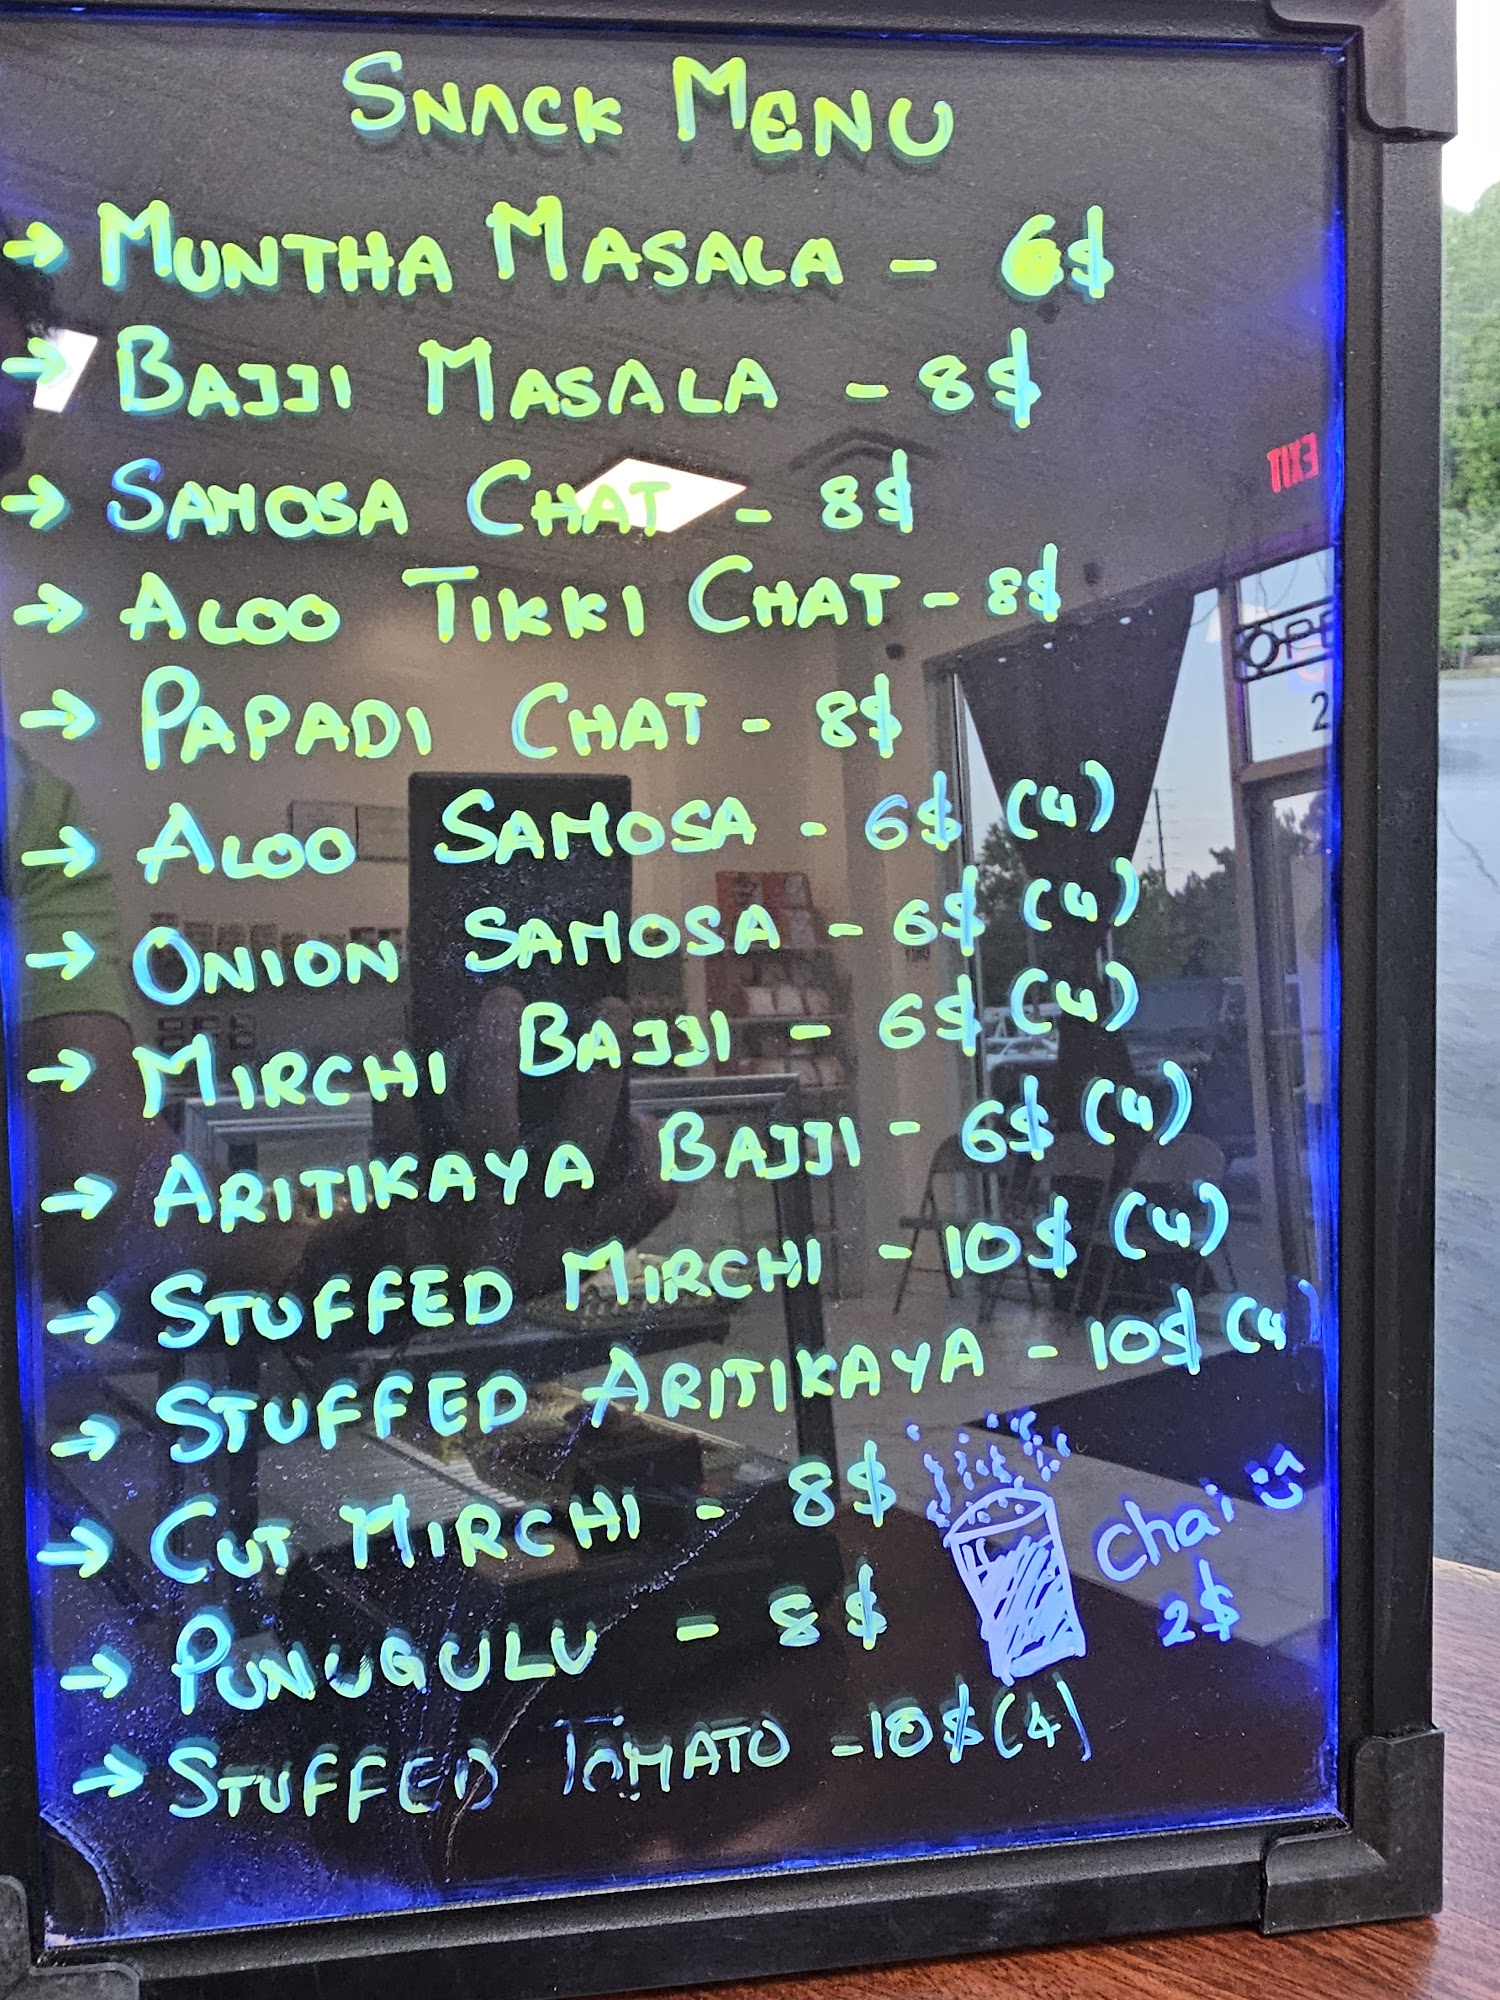 SNACK MENU
→ MUNTHA MASALA - 6$
→ BAJJI MASALA - 8$
→ SAMOSA CHAT - 8$
→ ALOO TIKKI CHAT - 8$
→ PAPADI CHAT - 8$
→ ALOO SAMOSA - 6$ (4)
→ ONION SAMOSA - 6$ (4)
→ MIRCHI BAJJI - 6$ (4)
→ ARITIKAYA BAJJI - 6$ (4)
→ STUFFED MIRCHI - 10$ (4)
→ STUFFED ARITIKAYA - 10$ (4)
→ CUT MIRCHI - 8$
→ PUNUGULU - 8$
→ STUFFED TOMATO - 10$ (4)
Chai
2$
EXIT
OPE
2